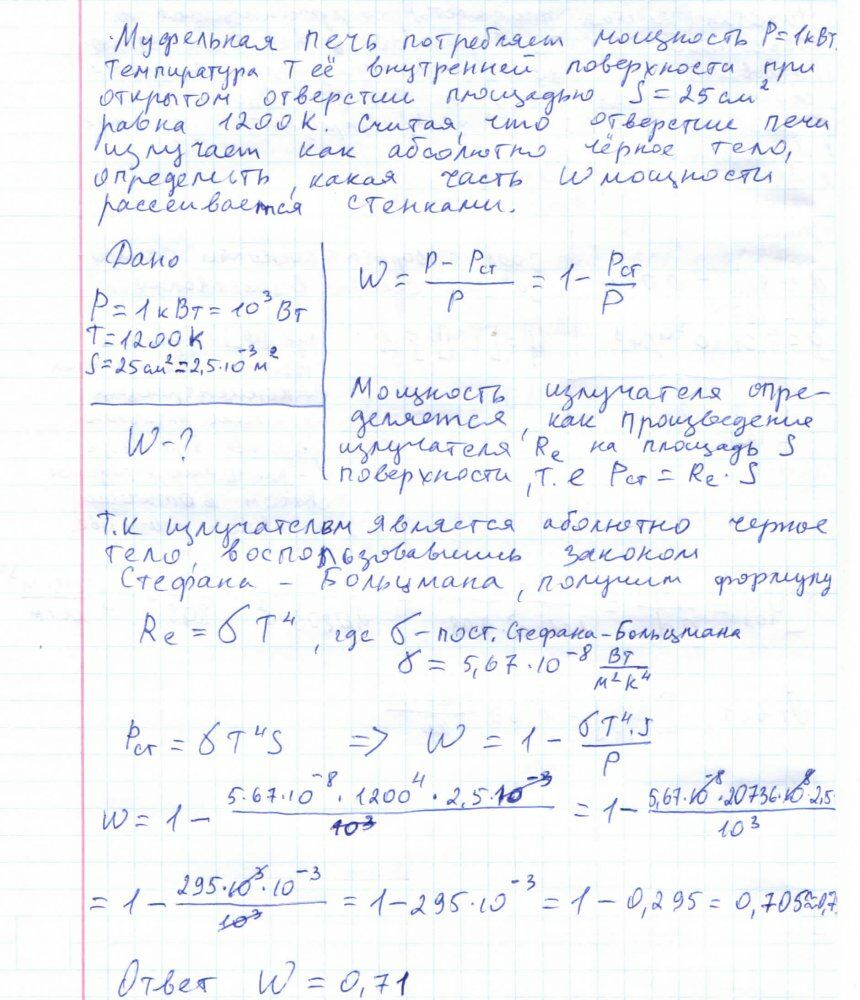 Муфельная печь потребляет мощность P = 1кВт.
Температура T её внутренней поверхности при
открытом отверстии площадью S = 25 см²
равна 1200К. Считая, что отверстие печи
излучает как абсолютно чёрное тело,
определить, какая часть W мощности
рассеивается стенками.
Дано
P = 1 кВт = 10³ Вт
T = 1200 К
S = 25 см² = 2,5·10⁻³ м²
W - ?
W = (P - Pст)/P = 1 - Pст/P
Мощность излучателя опре-
деляется, как произведение
излучателя Re на площадь S
поверхности, т.е Pст = Re · S
Т.к излучателем является аболютно черное
тело, воспользовавшись законом
Стефана - Больцмана, получим формулу
Re = σT⁴, где σ - пост. Стефана-Больцмана
σ = 5,67·10⁻⁸ Вт/(м²К⁴)
Pст = σT⁴S => W = 1 - (σT⁴·S)/P
W = 1 - (5.67·10⁻⁸ · 1200⁴ · 2,5·10⁻³)/10³ = 1 - (5,67·10⁻⁸·20736·10⁸·2,5·)/10³
= 1 - (295·10³·10⁻³)/10³ = 1 - 295·10⁻³ = 1 - 0,295 = 0,705≈0,7
Ответ W = 0,71